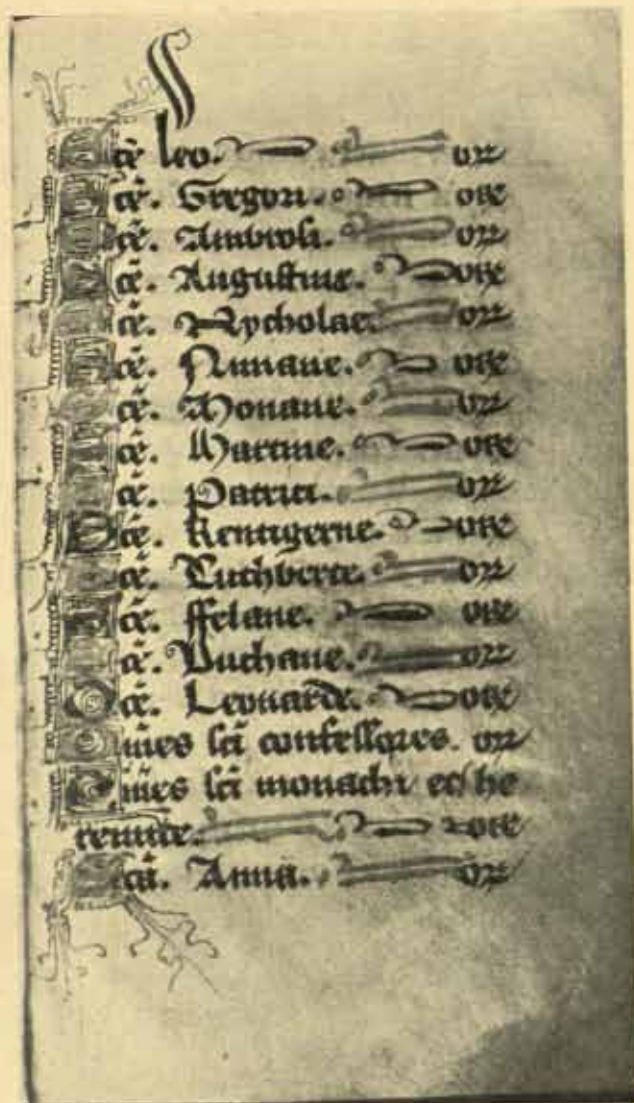 Scē. Leo. or
Scē. Gregori. ore
Scē. Ambrosi. or
Scē. Augustine. ore
Scē. Nycholae. or
Scē. Niniane. ore
Scē. Monane. or
Scē. Martine. ore
Scē. Patrici. or
Scē. Kentigerne. ore
Scē. Cuthberte. or
Scē. ffelane. ore
Scē. Duthane. or
Scē. Leonarde. ore
Om̄es sc̄i confessores. or
Om̄es sc̄i monachi et he
remite. ore
Scā. Anna. or